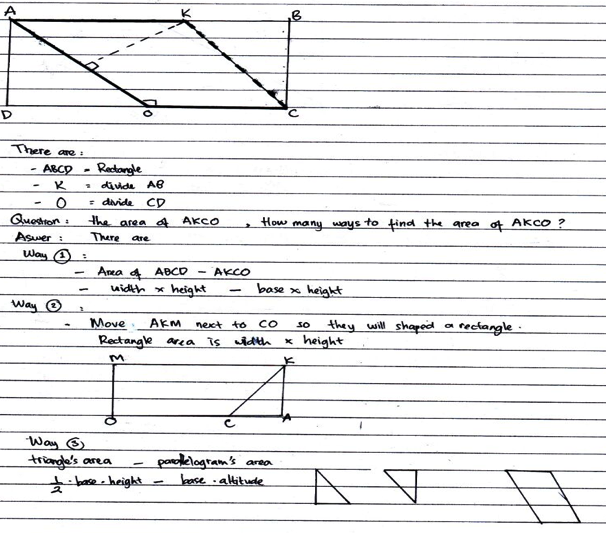 A K B
D O C
There are :
- ABCD = Rectangle
- K = divide AB
- O = divide CD
Question : the area of AKCO , How many ways to find the area of AKCO ?
Aswer : There are
Way ① :
- Area of ABCD - AKCO
- width x height - base x height
Way ② :
- Move AKM next to CO so they will shaped a rectangle.
Rectangle area is width x height
M K
O C A
Way ③
triangle's area - parallelogram's area
1/2 . base . height - base . altitude